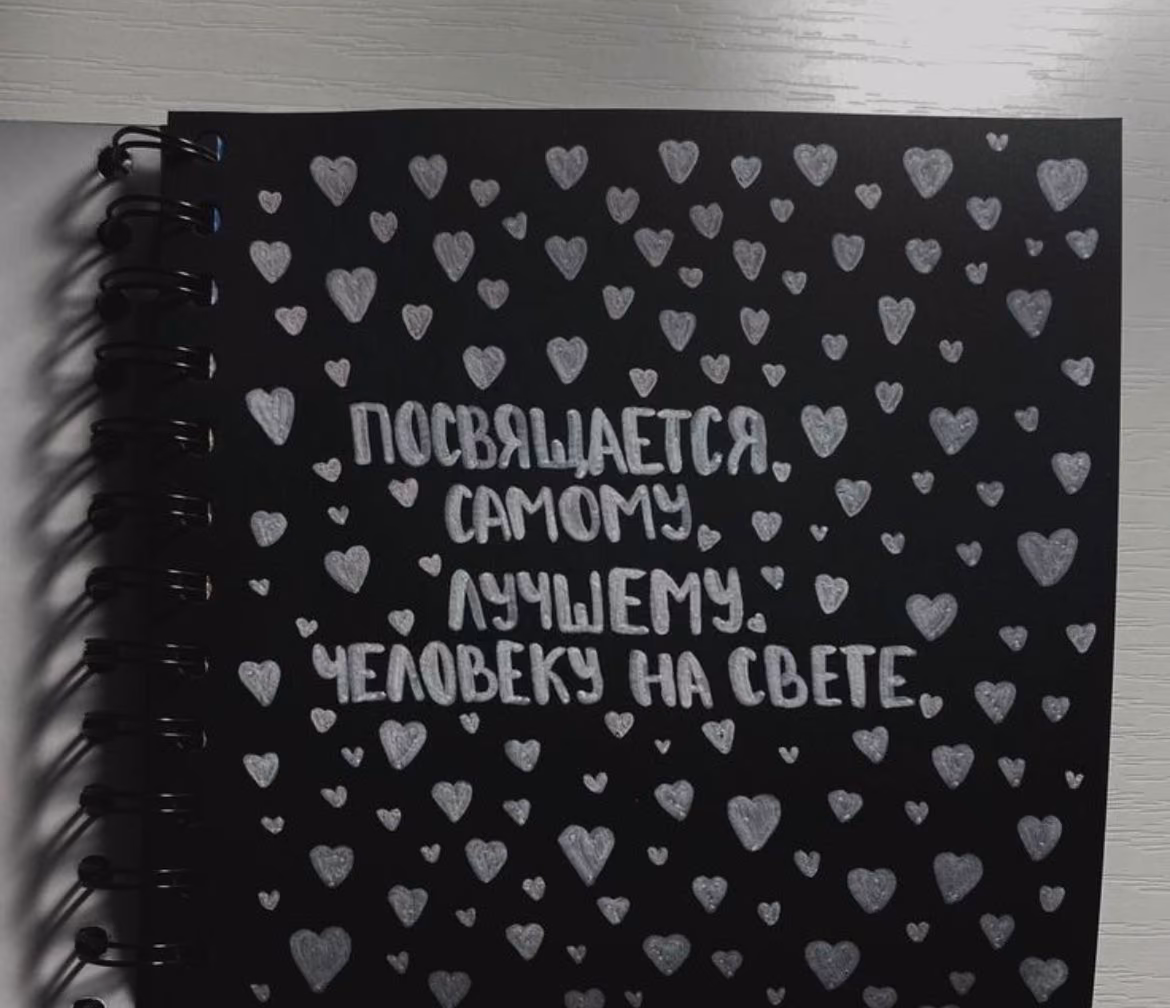 ПОСВЯЩАЕТСЯ
САМОМУ
ЛУЧШЕМУ
ЧЕЛОВЕКУ НА СВЕТЕ